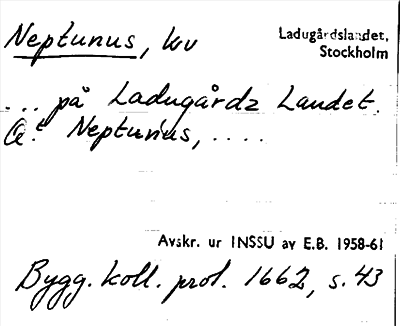 Neptunus, kv
Ladugårdslandet,
Stockholm
... på Ladugårdz Landet.
Q:t Neptunus, ....
Avskr. ur INSSU av E.B. 1958-61
Bygg. koll. prot. 1662, s. 43